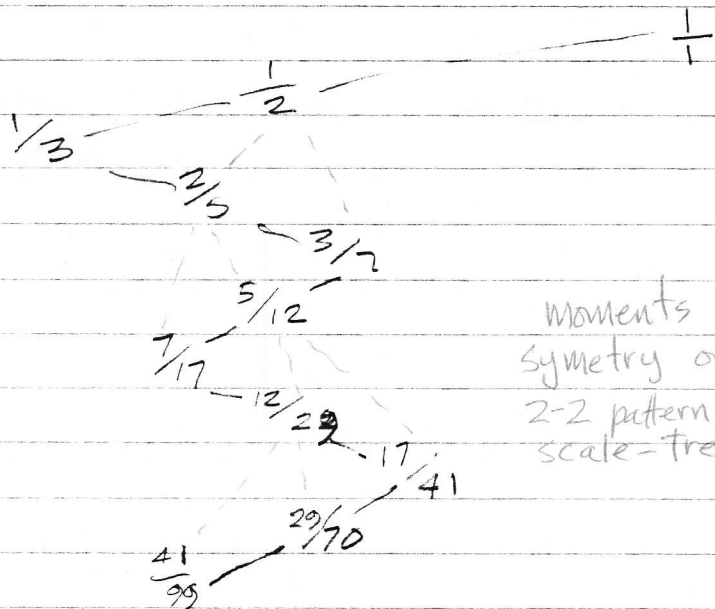 1/1
1/2
1/3
2/5
3/7
5/12
7/17
12/29
17/41
29/70
41/99
moments
symetry o
2-2 pattern
scale-tre